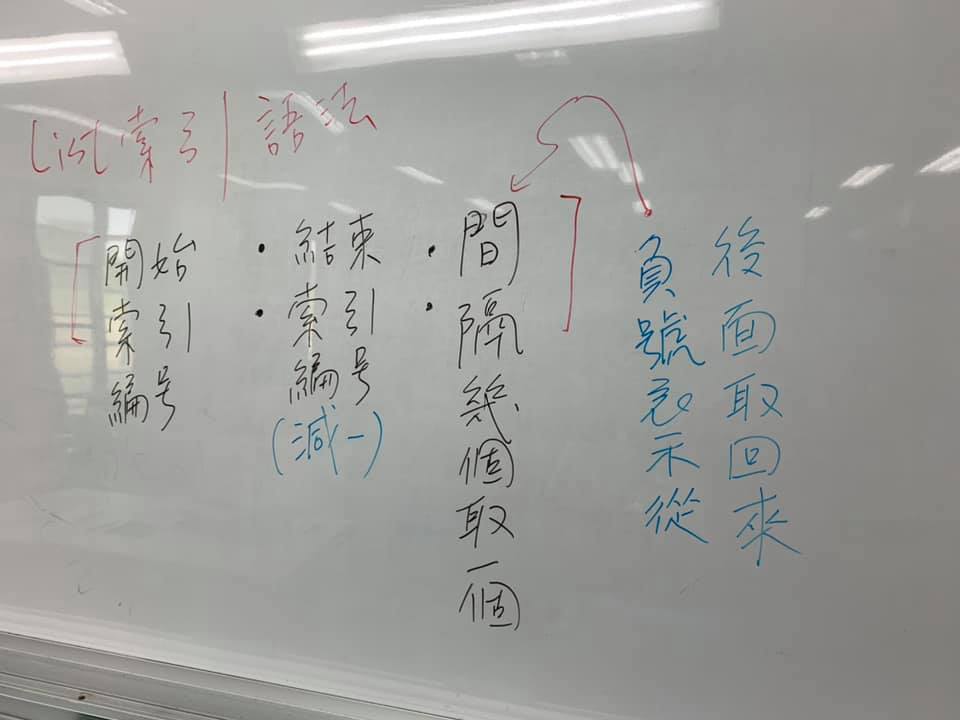 List索引語法
[開始索引編号:結束索引編号(減一):間隔幾個取一個]
負號表示從
後面取回來